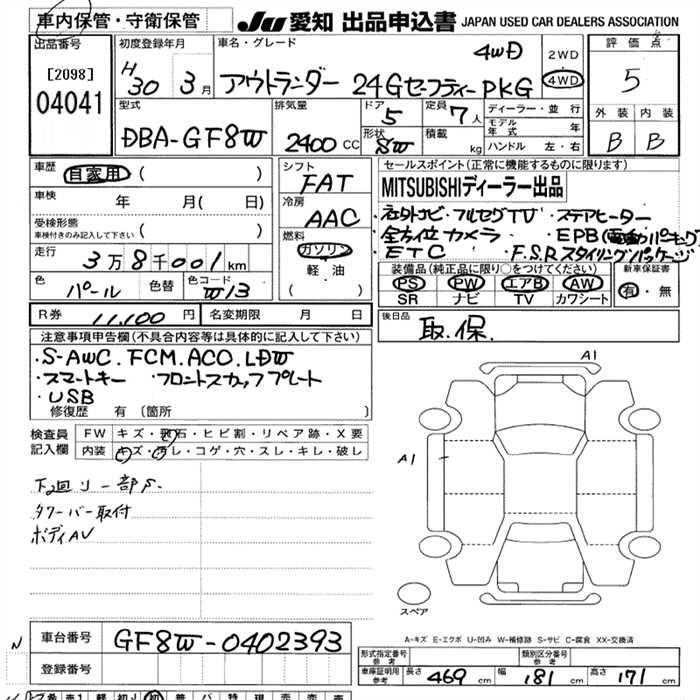 車内保管・守衛保管 JU 愛知 出品申込書 JAPAN USED CAR DEALERS ASSOCIATION
出品番号 初度登録年月 車名・グレード 4WD 2WD 評価点
[2098] H30 3月 アウトランダー 24Gセーフティー PKG 4WD 5
04041 型式 排気量 ドア 5 定員 7人 ディーラー・並行 外装 内装
DBA-GF8W 2400CC 形状 8W 積載 kg モデル年式 年 B B
ハンドル 左・右
車歴 自家用 ( ) シフト FAT セールスポイント(正常に機能するものに限ります)
車検 年 月( 日) 冷房 AAC MITSUBISHIディーラー出品
受検形態 ( ) ・社外ナビ・フルセグTV ・ステアヒーター
車検付きのみ記入して下さい ・全方位カメラ ・EPB(電動パーキング
走行 3万8千001km 燃料 ガソリン ・ETC ・F.S.Rスタイリングパッケージ
色 パール 色替 色コード W13 軽油 ( ) 装備品(純正品に限り○をつけてください) 新車保証書
PS PW エアB AW 有・無
SR ナビ TV カワシート
R券 11,100円 名変期限 月 日 後日品 取.保.
注意事項申告欄(不具合内容等は具体的に記入して下さい)
・S-AWC.FCM.ACO.LDW
・スマートキー ・フロントスカッフプレート
・USB
修復歴 有 (箇所 )
A1
検査員記入欄 FW キズ・飛石・ヒビ割・リペア跡・X要
内装 キズ・汚レ・コゲ・穴・スレ・キレ・破レ
A1
下廻リ一部S.
タワーバー取付
ボディAU
スペア
A-キズ E-エクボ U-凹み W-補修跡 S-サビ C-腐食 XX-交換済
N 車台番号 GF8W-0402393
登録番号
形式指定番号 参考 類別区分番号 参考
車庫証明用 参考 長さ 469cm 幅 181cm 高さ 171cm